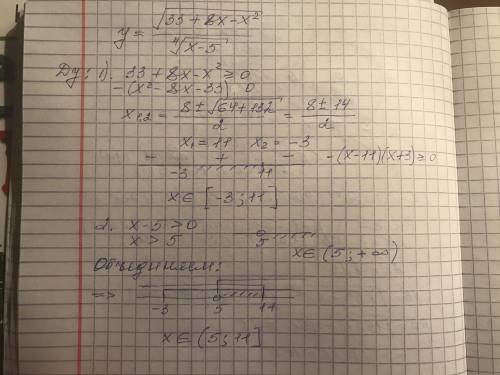 y = √(33 + 8x - x²) / ⁴√(x-5)
Dy: 1). 33 + 8x - x² ≥ 0
-(x² - 8x - 33) 0
x₁,₂ = (8 ± √(64+132)) / 2 = (8 ± 14) / 2
x₁ = 11 x₂ = -3
- + - -(x-11)(x+3) ≥ 0
-3 11
x ∈ [-3; 11]
2. x - 5 > 0
x > 5 5
x ∈ (5; +∞)
Объединяем:
=> -3 5 11
x ∈ (5; 11]